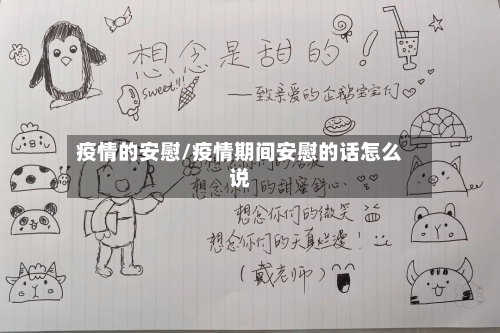 想念是甜的！
sweet!!!
——致亲爱的企鹅宝宝们
疫情的安慰/疫情期间安慰的话怎么
说
想念你们的甜蜜舒心
想念你们的微笑
想念你们的天真烂漫！
（戴老师）